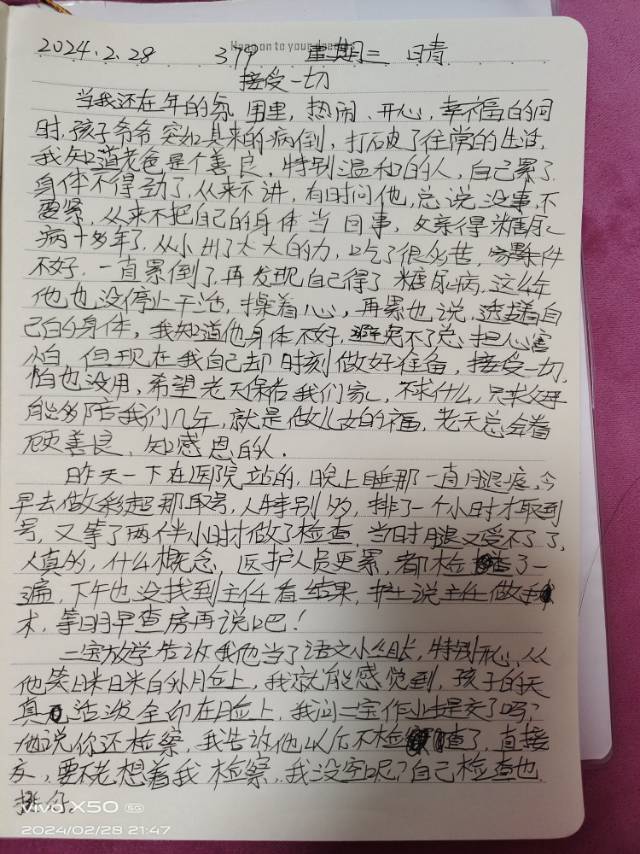 2024.2.28 379 星期三 日晴
Hang on to your
接受一切
当我还在年的氛围里,热闹、开心,幸福的同
时,孩子爷爷突如其来的病倒,打破了往常的生活,
我知道老爸是个善良,特别温和的人,自己累了
身体不得劲了,从来不讲,有时问他,总说没事,不
要紧,从来不把自己的身体当回事,父亲得糖尿
病十多年了,从小出了太大的力,吃了很多苦,条件
不好,一直累倒了,再发现自己得了糖尿病,这么年
他也没停止干活,操着心,再累也说,透着自
己的身体,我知道他身体不好,免不了总担心害
怕,但现在我自己却时刻做好准备,接受一切,
怕也没用,希望老天保佑我们家,不求什么,只求父母
能多陪我们几年,就是做儿女的福,老天总会眷
顾善良,知感恩的人.
昨天一下在医院站的,晚上睡那一直腿疼,今
早去做彩超那取号,人特别多,排了一个小时才取到
号,又等了两个半小时才做了检查,当时腿又受不了了,
人真的,什么概念,医护人员更累,都检查了一
遍,下午也没找到主任看结果,护士说主任做手
术,等明早查房再说吧!
二宝放学告诉我他当了语文小组长,特别开心,从
他笑眯眯的小脸上,我就能感觉到,孩子的天
真活泼全印在脸上,我问二宝作业提交了吗?
他说你还检察,我告诉他以后不检查了,直接
交,要不老想着我检察,我没空呢?自己检查也
挺好。
vivo X50 5G
2024/02/28 21:47